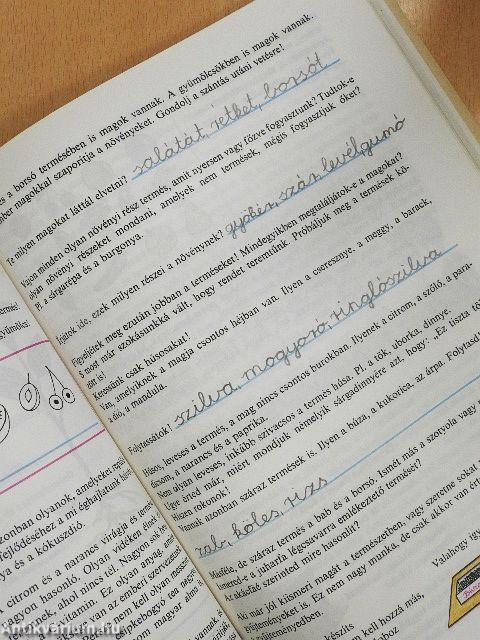 és a borsó termésében is magok vannak. A gyümölcsökben is magok vannak.
magokkal szaporítja a növényeket. Gondolj a szántás utáni vetésre!
Te milyen magokat láttál elvetni? salátát, retket, borsót
Vajon minden olyan növényi rész termés, amit nyersen vagy főzve fogyasztunk? Tudtok-e
olyan növényi részeket mondani, amelyek nem termések, mégis fogyasztjuk őket?
Pl. a sárgarépa és a burgonya.
Írjátok ide, ezek milyen részei a növénynek? gyökér, szár, levélgumó
Figyeljétek meg ezután jobban a terméseket! Mindegyikben megtaláljátok-e a magokat?
S most már szokásunkká vált, hogy rendet teremtünk. Próbáljuk meg a termések kö-
zött is!
Keressünk csak húsosakat!
Van, amelyiknek a magja csontos héjban van. Ilyen a cseresznye, a meggy, a barack,
a dió, a mandula.
Folytassátok! szilva, mogyoró, ringlószilva
Húsos, leveses a termés, a mag nincs csontos burokban. Ilyenek a citrom, a szőlő, a para-
dicsom, a narancs és a paprika.
Nem olyan leveses, inkább szivacsos a termés húsa. Pl. a tök, uborka, dinnye.
Ugye érted már, miért mondjuk némelyik sárgadinnyére azt, hogy: „Ez tiszta tök
Hiszen rokonok!
Vannak azonban száraz termések is. Ilyen a búza, a kukorica, az árpa. Folytasd
zab, köles, rizs
Másféle, de száraz termés a bab és a borsó. Ismét más a szotyola vagy
Ismered-e a juharfa égcsavarra emlékeztető termését?
Az akácfáé szerinted mire hasonlít?
Aki már jól kiismeri magát a természetben, vagy szeretne sokat
gyűjteményeket is. Ez nem nagy munka, de csak akkor van ért
gyűjteményedben.
Valahogy így
készíts
kell hozzá más,
termés!
Gyümölcs!
azonban olyanok, amelyeket
fejlődéséhez a mi éghajlatunk
és a kókuszdió.
A citrom és a narancs virágja és termése
nagyon hasonló. Olyan vidéken
ahol nincs tél. Nagyon sok
vitamin. Ez olyan anyag,
az emberi szervezet
kell olyan
antikvarium.hu